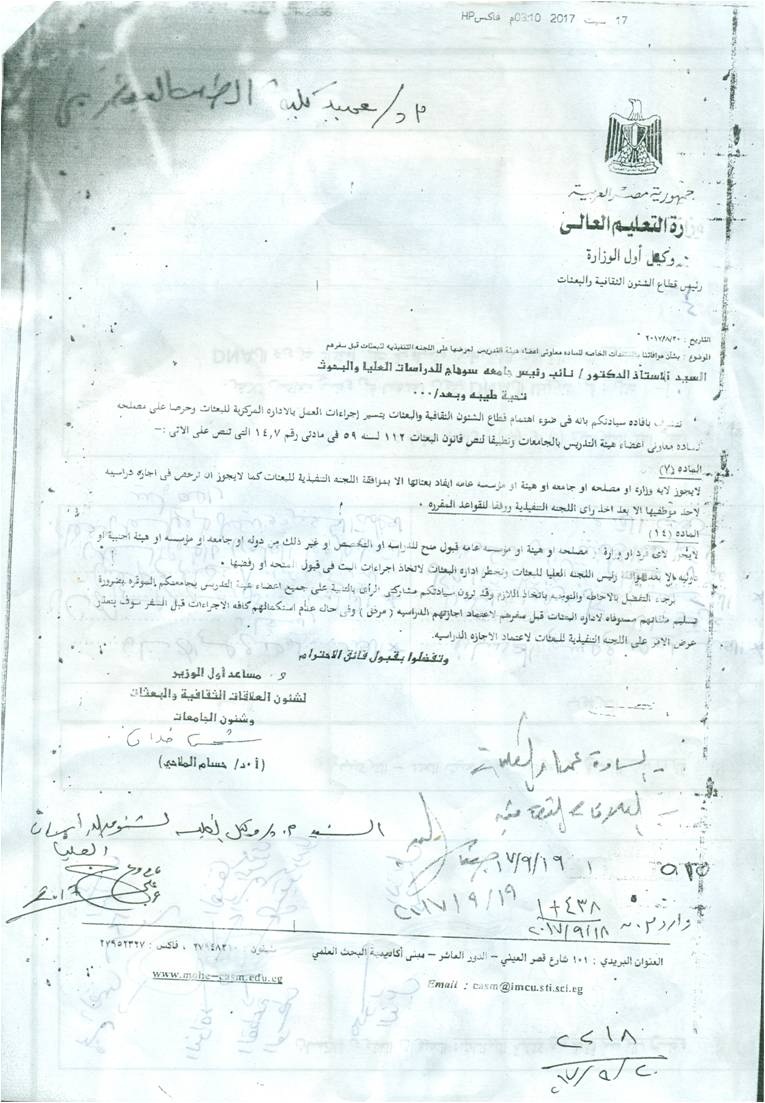 17 سبت 2017 03:10م فاكسHP
م د/ عميد كلية الطب
جمهورية مصر العربية
وزارة التعليم العالى
وكيل أول الوزارة
رئيس قطاع الشئون الثقافية والبعثات
التاريخ : ٢٠١٧/٨/٢٠
الموضوع : بشأن موافاتنا بالمستندات الخاصه للساده معاونى اعضاء هيئة التدريس لعرضها على اللجنه التنفيذيه للبعثات قبل سفرهم
السيد الاستاذ الدكتور / نائب رئيس جامعه سوهاج للدراسات العليا والبحوث
تحية طيبه وبعد/٠٠٠
نتشرف بافاده سيادتكم بانه فى ضوء اهتمام قطاع الشئون الثقافية والبعثات بتسير إجراءات العمل بالاداره المركزية للبعثات وحرصا على مصلحه
الساده معاونى اعضاء هيئة التدريس بالجامعات وتطبيقا لنص قانون البعثات ١١٢ لسنه ٥٩ فى مادتى رقم ١٤,٧ التى تنص على الاتى :-
الماده (٧)
لايجوز لايه وزاره او مصلحه او جامعه او هيئة او مؤسسه عامه ايفاد بعثاتها الا بموافقة اللجنه التنفيذية للبعثات كما لايجوز ان ترخص فى اجازه دراسيه
لاحد موظفيها الا بعد اخذ راى اللجنه التنفيذية ووفقا للقواعد المقرره ٠
الماده (١٤)
لايجوز لاى فرد او وزارة او مصلحه او هيئة او مؤسسه عامه قبول منح للدراسه او التخصص او غير ذلك من دوله او جامعه او مؤسسه او هيئة اجنبية او
دوليه الا بعد موافقة رئيس اللجنه العليا للبعثات وتخطر اداره البعثات لاتخاذ اجراءات البت فى قبول المنحه او رفضها ٠
برجاء التفضل بالاحاطه والتوجيه باتخاذ اللازم وقد ترون سيادتكم مشاركتى الرأى بالتنبية على جميع اعضاء هيئة التدريس بجامعتكم الموقره بضرورة
تسليم ملفاتهم مستوفاه لاداره البعثات قبل سفرهم لاعتماد اجازتهم الدراسيه ( مرفق ) وفى حاله عدم استكمالهم كافه الاجراءات قبل السفر سوف يتعذر
عرض الامر على اللجنه التنفيذية للبعثات لاعتماد الاجازه الدراسيه.
وتفضلوا بقبول فائق الاحترام
مساعد أول الوزير
لشئون العلاقات الثقافية والبعثات
وشئون الجامعات
(أ.د/ حسام الملاحي)
- السادة عمداء الكليات
- العلاقات الثقافية
السيد م.د/ وكيل الكلية لشئون الدراسات
العليا
١٧/٩/١٩
٢٠١٧/٩/١٩
وارد
٢٠١٧/٩/١٨
العنوان البريدي : ١٠١ شارع قصر العيني – الدور العاشر – مبنى أكاديمية البحث العلمي تليفون : ٢٧٩٤٨٣١٠ ، فاكس : ٢٧٩٥٢٣٢٧
Email : casm@imcu.sti.sci.eg www.mohe-casm.edu.eg